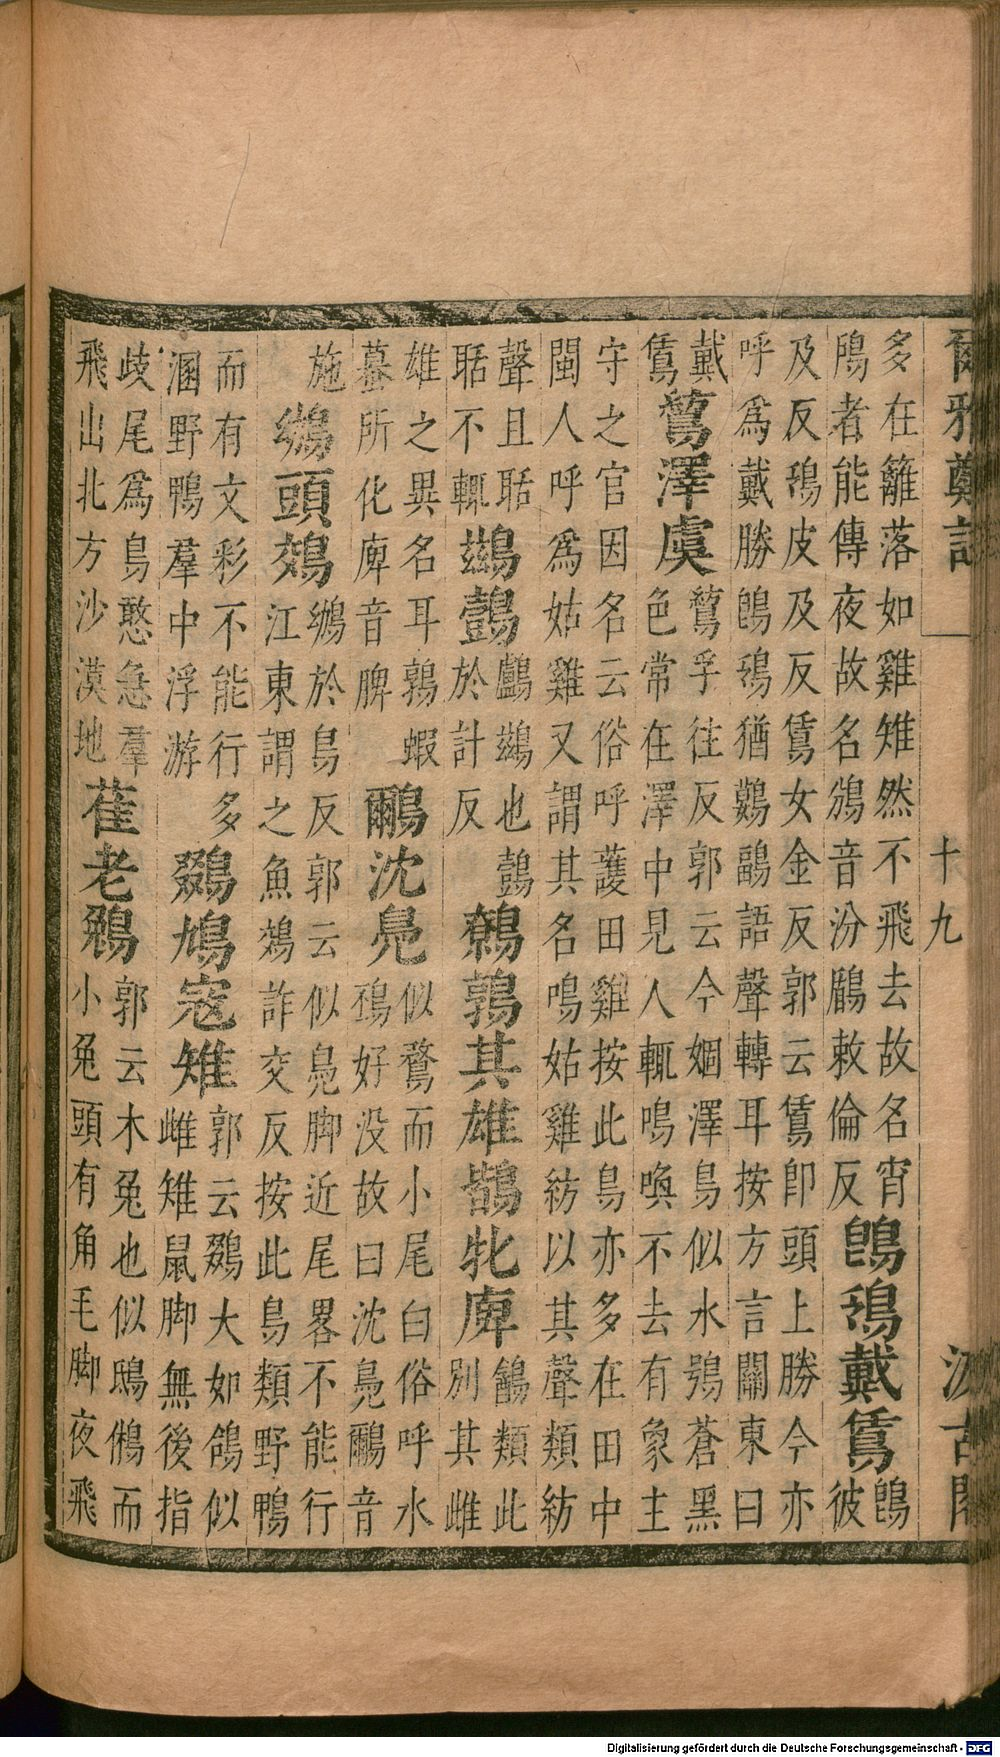 爾雅鄭註 十九 汲古閣
多在籬落如雞雉然不飛去故名宵
鳸者能傳夜故名鳻音汾鶞敕倫反
鵖鴔戴鵀
鵖
彼
及反鴔皮及反鵀女金反郭云鵀即頭上勝今亦
呼為戴勝鵖鴔猶鶝鶔語聲轉耳按方言關東曰
戴
鵀
鶭澤虞
鶭孚往反郭云今婟澤鳥似水鴞蒼黑
色常在澤中見人輒鳴喚不去有象主
守之官因名云俗呼護田雞按此鳥亦多在田中
閩人呼為姑雞又謂其名鳴姑雞紡以其聲類紡
聲且聒
聒不輒
鷀鷧
鸕鷀也鷧
於計反
鷯鶉其雄鶛牝庳
鶉類此
別其雌
雄之異名耳鶉蝦
蟇所化庳音脾
鸍沈鳧
似鶩而小尾白俗呼水
鵶好没故曰沈鳧鸍音
施
鴢頭鵁
鴢於鳥反郭云似鳧脚近尾畧不能行
江東謂之魚鵁詐交反按此鳥類野鴨
而有文彩不能行多
溷野鴨羣中浮游
鵽鳩寇雉
郭云鵽大如鴿似
雌雉鼠脚無後指
歧尾爲鳥憨急羣
飛出北方沙漠地
萑老鵵
郭云木兔也似鴟鵂而
小兔頭有角毛脚夜飛
Digitalisierung gefördert durch die Deutsche Forschungsgemeinschaft - DFG